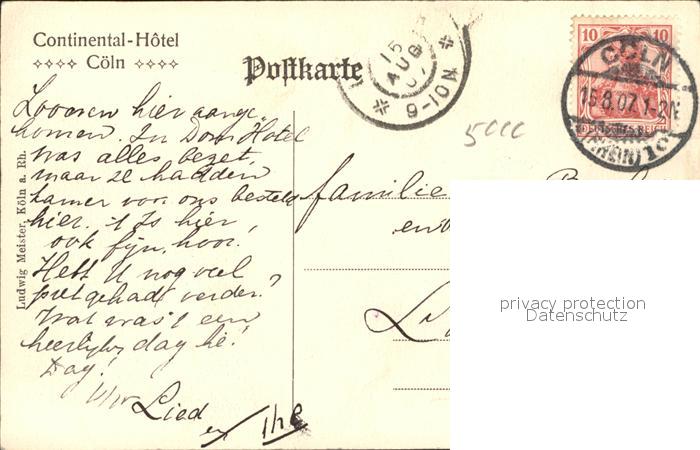 Continental-Hôtel
Cöln
Postkarte
15
AUG
07
9-10N
10 10
DEUTSCHES REICH
CÖLN
15.8.07.1-2N
(RHEIN)
5
hier aange-
komen. In Dom Hotel
was alles bezet,
maar ze hadden
kamer voor ons besteld
hier. 't Is hier
ook fijn, hoor.
Hebt U nog veel
pret gehad verder?
Wat was 't een
heerlijke dag hè!
Dag!
Lied
en
familie
Ludwig Meister, Köln a. Rh.
privacy protection
Datenschutz